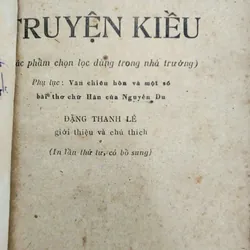 TRUYỆN KIỀU
tác phẩm chọn lọc dùng trong nhà trường)
Phụ lục: Văn chiêu hồn và một số
bài thơ chữ Hán của Nguyễn Du
ĐẶNG THANH LÊ
giới thiệu và chú thích
(In lần thứ tư, có bổ sung)